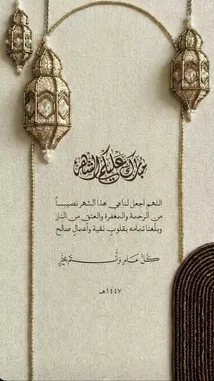 مبارك عليكم الشهر
اللهم اجعل لنا في هذا الشهر نصيباً
من الرحمة والمغفرة والعتق من النار
وبلغنا تمامه بقلوب نقية وأعمال صالح
كل عام وأنتم بخير
١٤٤٧هـ